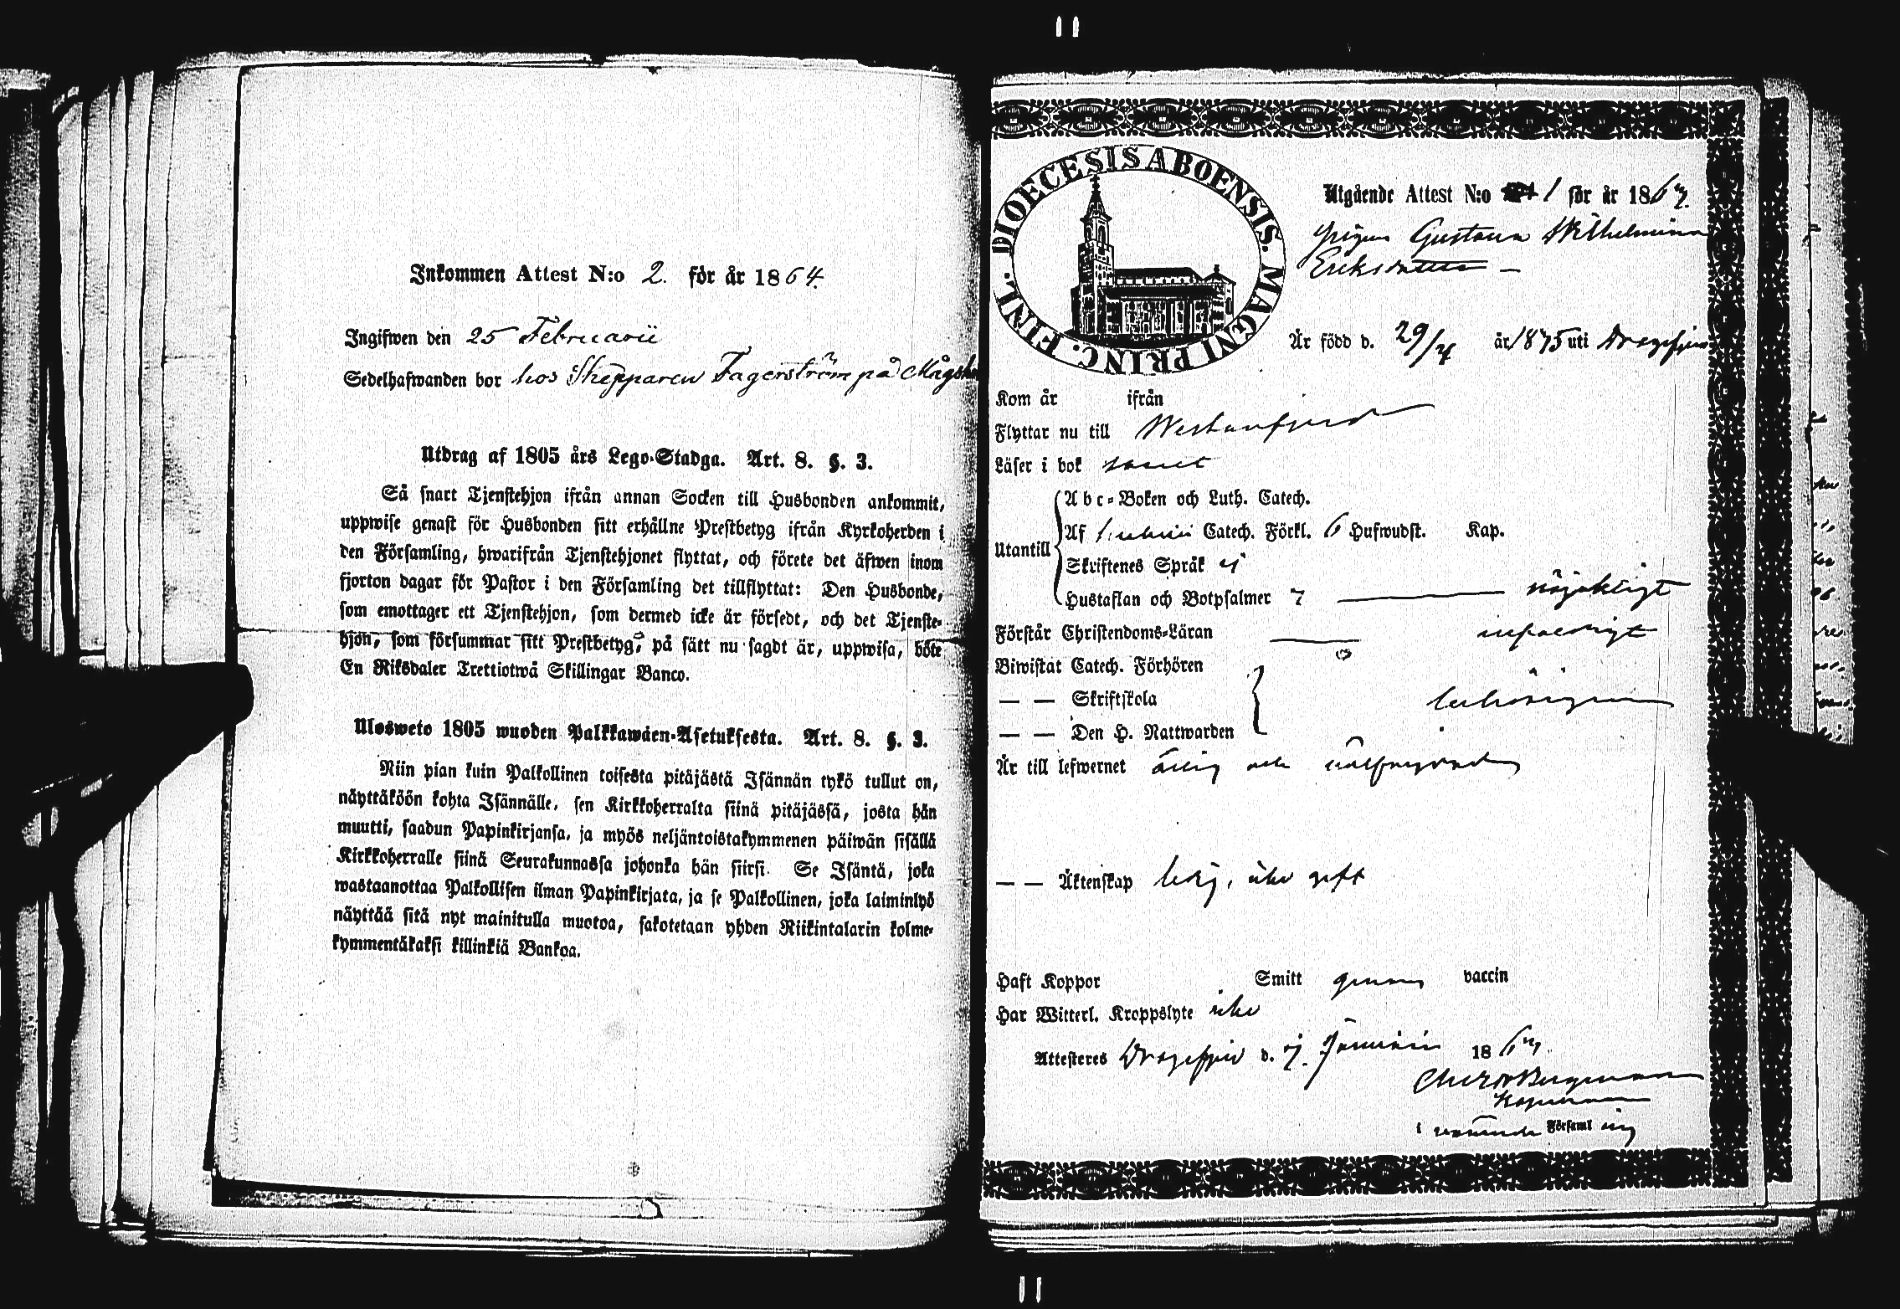 Inkommen Attest N:o 2. för år 1864.
Ingifwen den 25 Februarii
Sedelhafwanden bor hos Skepparen Fagerström på
Utdrag af 1805 års Lego-Stadga. Art. 8. §. 3.
Så snart Tjenstehjon ifrån annan Socken till Husbonden ankommit,
uppwise genast för Husbonden sitt erhållne Prestbetyg ifrån Kyrkoherden i
den Församling, hwarifrån Tjenstehjonet flyttat, och förete det äfwen inom
fjorton dagar för Pastor i den Församling det tillflyttat: Den Husbonde,
som emottager ett Tjenstehjon, som dermed icke är försedt, och det Tjenste-
hjon, som försummar sitt Prestbetyg, på sätt nu sagdt är, uppwisa, böte
En Riksdaler Trettiotwå Skillingar Banco.
Ulosweto 1805 wuoden Palkkawäen-Asetuksesta. Art. 8. §. 3.
Niin pian kuin Palkollinen toisesta pitäjästä Isännän tykö tullut on,
näyttäköön kohta Isännälle, sen Kirkkoherralta siinä pitäjässä, josta hän
muutti, saadun Papinkirjansa, ja myös neljäntoistakymmenen päiwän sisällä
Kirkkoherralle siinä Seurakunnassa johonka hän siirsi. Se Isäntä, joka
wastaanottaa Palkollisen ilman Papinkirjata, ja se Palkollinen, joka laiminlyö
näyttää sitä nyt mainitulla muotoa, sakotetaan yhden Riikintalarin kolme-
kymmentäkaksi killinkiä Bankoa.
DIOECESIS ABOENSIS. MAGNI PRINC. FINL.
Utgående Attest N:o 1 för år 186
Pigan Gustava Wilhelmina
Eriksdotter
Är född d. 29/4 år 1845 uti Dragsfjerd
Kom år ifrån
Flyttar nu till Westanfjerd
Läser i bok
Utantill
Abc-Boken och Luth. Catech.
Af Catech. Förkl. 6 Hufwudst. Kap.
Skriftenes Språk
Hustaflan och Botpsalmer 7 nöjaktigt
Förstår Christendoms-Läran
Biwistat Catech. Förhören
— — Skriftskola behörigen
— — Den H. Nattwarden
Är till lefwernet ärlig och wälfrejdad
— — Äktenskap ledig, icke gift
Haft Koppor Smitt genom vaccin
Har Witterl. Kroppslyte icke
Attesteres Dragsfjerd d. Januarii 186
Bergman
Kapellan
i Församl ing